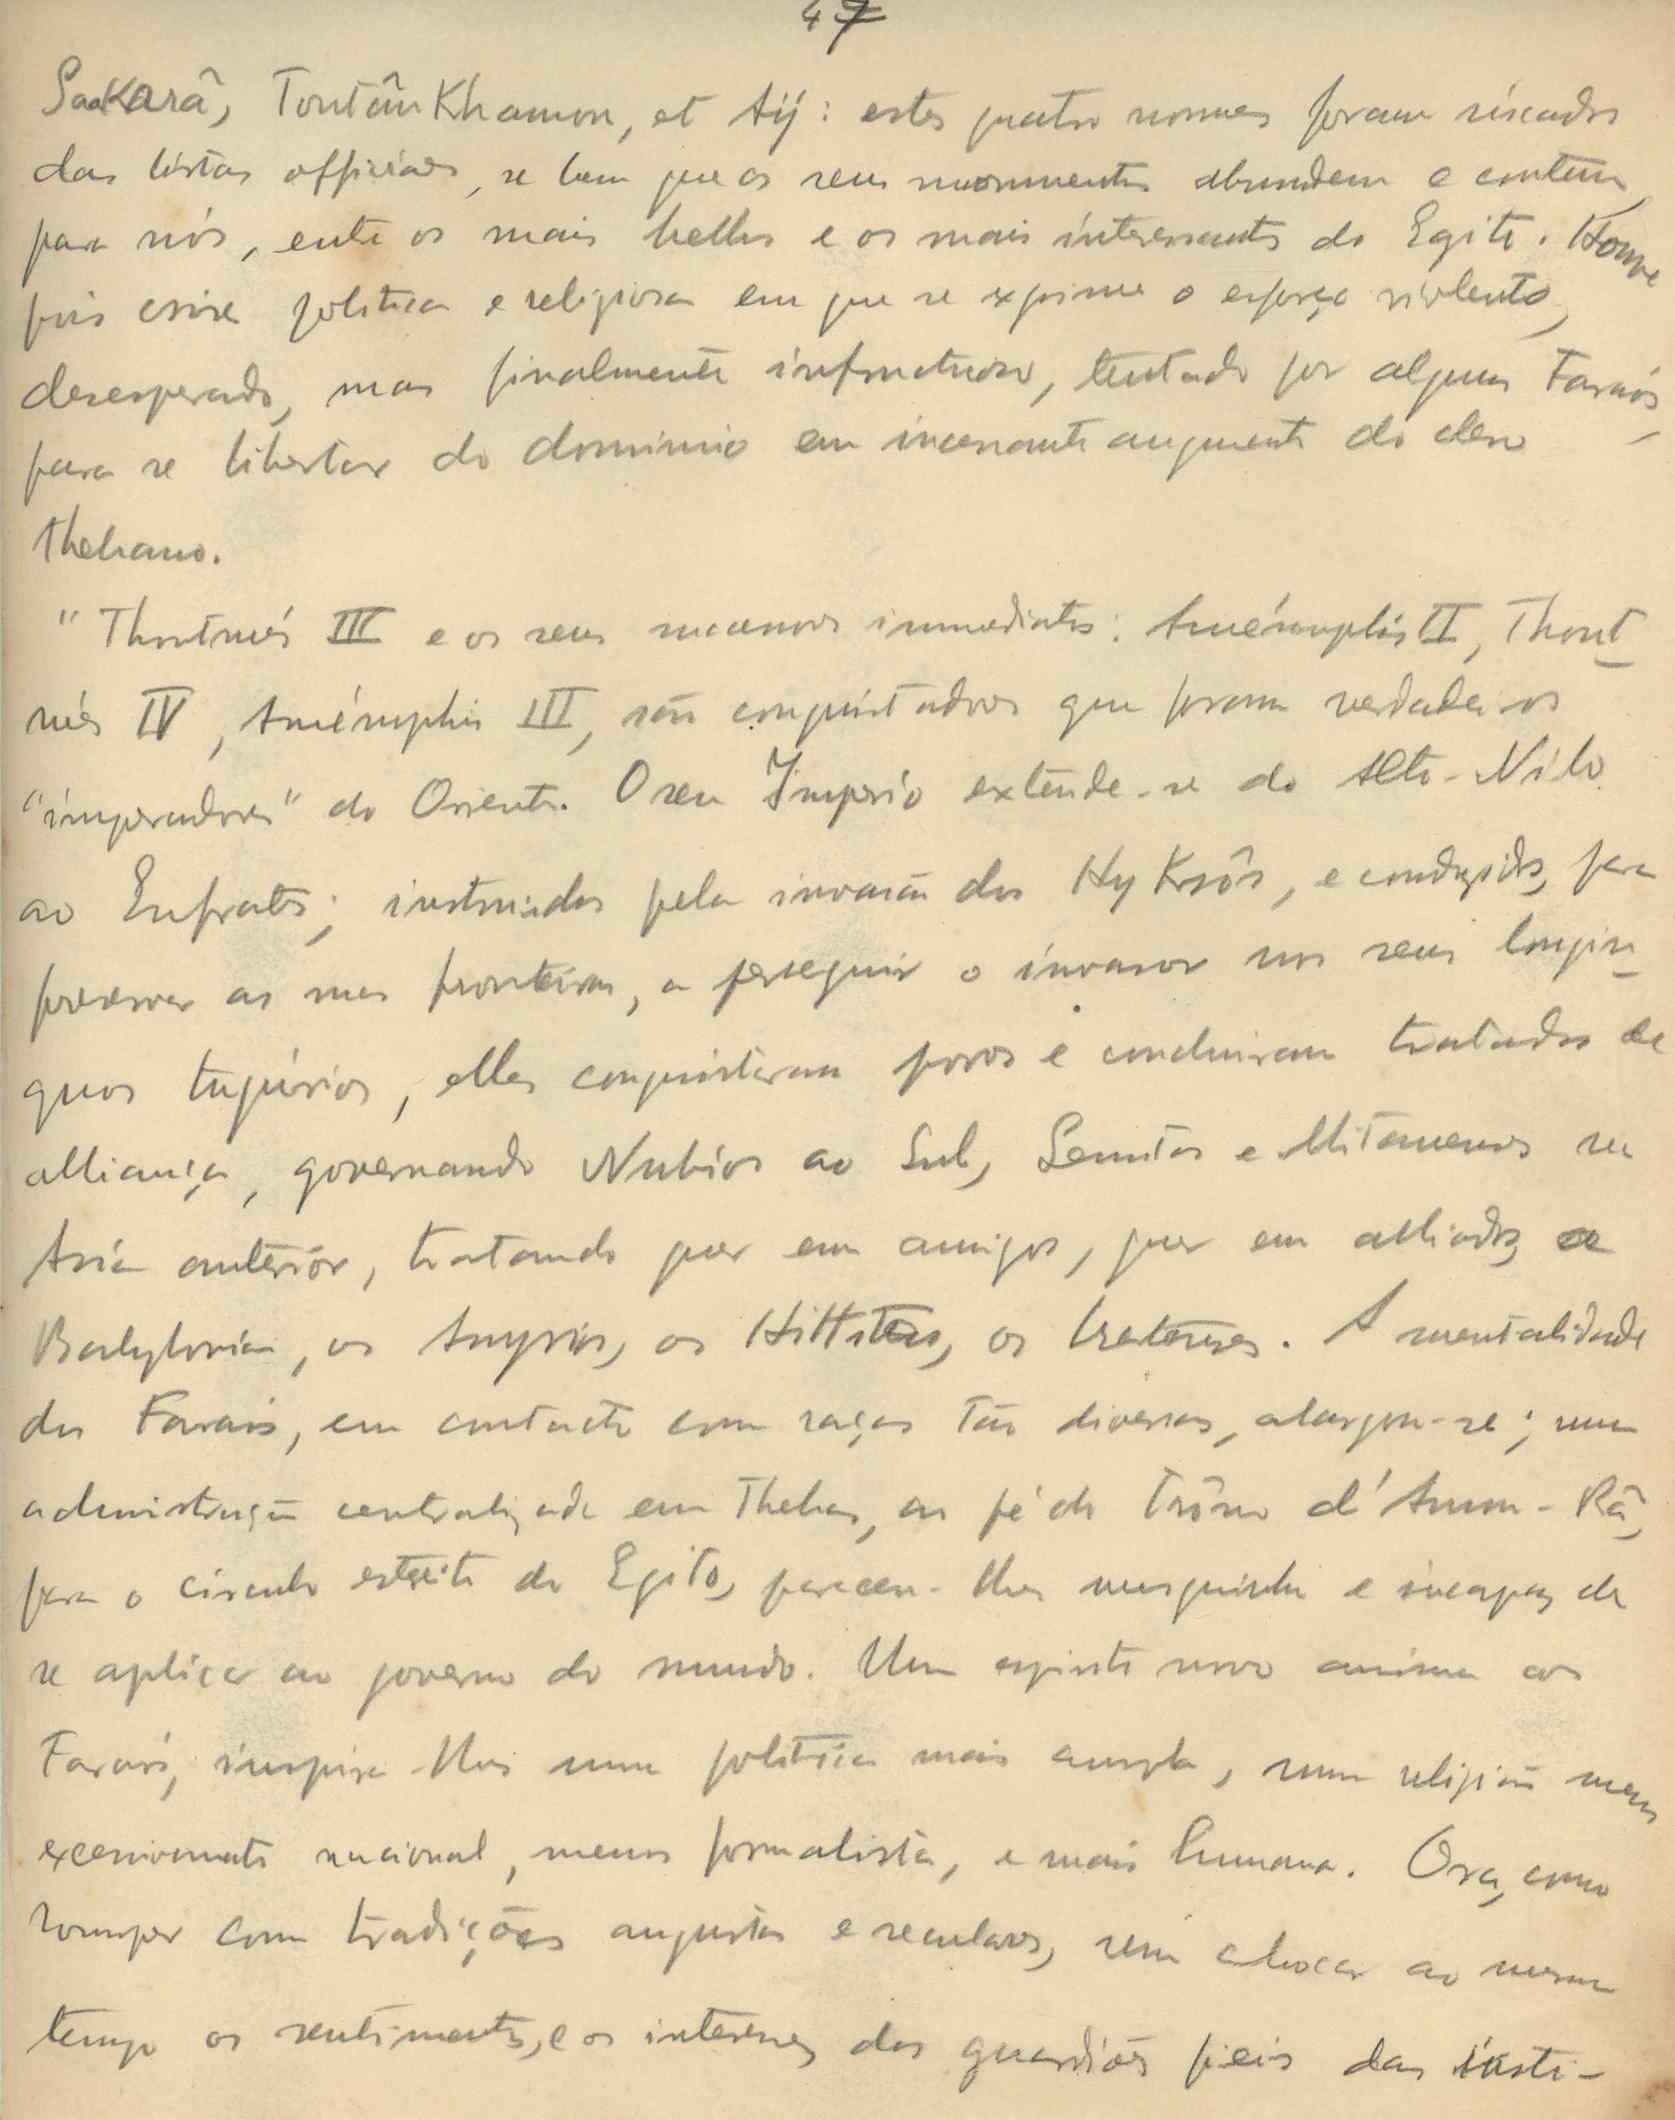 47
Saakarâ, ToutânKhamon, et Aÿ: estes quatro nomes foram riscados
das listas officiaes, se bem que os seus monumentos abundem e contem,
para nós, entre os mais bellos e os mais interessantes do Egito. Houve
pois crise politica e religiosa em que se exprime o esforço violento,
desesperado, mas finalmente infructuoso, tentado por alguns Faraós,
para se libertar do dominio em incessante augmento do clero
thebano.
"Thoutmés III e os seus sucessores immediatos: Aménophis II, Thout-
més IV, Aménophis III, são conquistadores que foram verdadeiros
"imperadores" do Oriente. O seu Imperio extende-se do Alto-Nilo
ao Eufrates; instruidos pela invasão dos HyKsôs, e conduzidos, para
preservar as suas fronteiras, a perseguir o invasor nos seus longin-
quos tugúrios, elles conquistaram povos e concluiram tratados de
alliança, governando Nubios ao Sul, Semitas e Mitanenses na
Asia anterior, tratando quer em amigos, quer em alliados, a
Babylonia, os Assyrios, os Hittitas, os Cretenses. A mentalidade
dos Faraós, em contacto com raças tão diversas, alargou-se; uma
administração centralizada em Thebas, ao pé do Trôno d'Amon-Râ,
para o circulo estreito do Egito, pareceu-lhes mesquinha e incapaz de
se aplicar ao governo do mundo. Um espirito novo anima os
Faraós, inspira-lhes uma politica mais ampla, uma religião menos
excessivamente nacional, menos formalista, e mais humana. Ora, como
romper com tradições augustas e seculares, sem chocar ao mesmo
tempo os sentimentos, e os interesses dos guardiões fieis das insti-